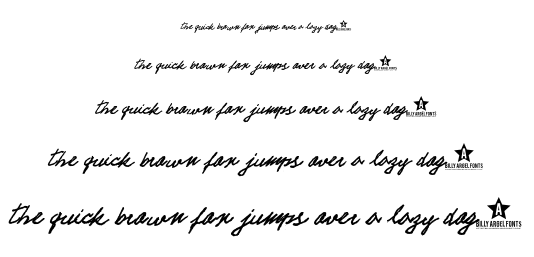 the quick brown fox jumps over a lazy dog
the quick brown fox jumps over a lazy dog BILLY ARGEL FONTS
the quick brown fox jumps over a lazy dog A BILLY ARGEL FONTS
the quick brown fox jumps over a lazy dog A BILLY ARGEL FONTS
the quick brown fox jumps over a lazy dog A BILLY ARGEL FONTS